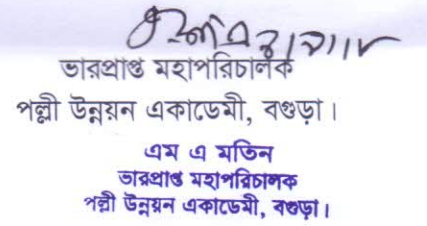 ভারপ্রাপ্ত মহাপরিচালক
পল্লী উন্নয়ন একাডেমী, বগুড়া।
এম এ মতিন
ভারপ্রাপ্ত মহাপরিচালক
পল্লী উন্নয়ন একাডেমী, বগুড়া।